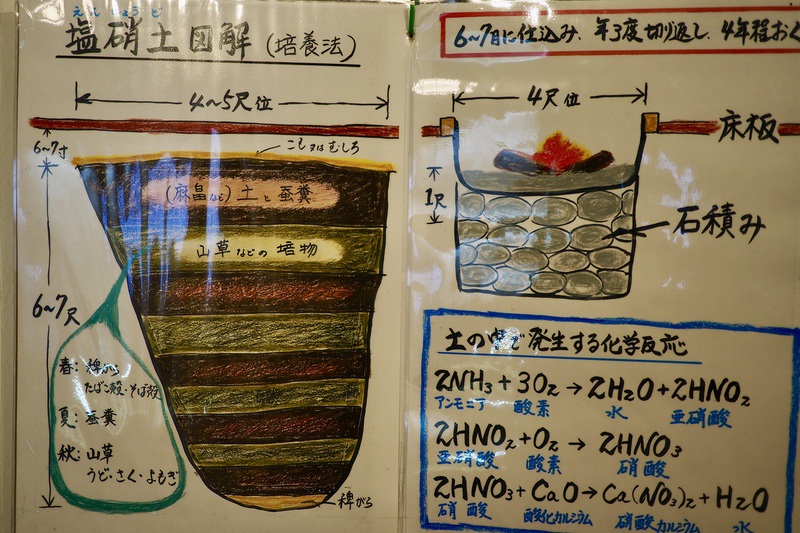 えんしょうど
塩硝土図解(培養法)
4~5尺位
6~7寸
こも又はむしろ
(麻畠など)土と蚕糞
山草などの培物
6~7尺
春:稗がら
たばこ殻・そば殻
夏:蚕糞
秋:山草
うど・さく・よもぎ
稗がら
6~7月に仕込み、年3度切り返し、4年程おく
4尺位
床板
1尺
石積み
土の中で発生する化学反応
2NH₃+3O₂→2H₂O+2HNO₂
アンモニア 酸素 水 亜硝酸
2HNO₂+O₂→2HNO₃
亜硝酸 酸素 硝酸
2HNO₃+CaO→Ca(NO₃)₂+H₂O
硝酸 酸化カルシウム 硝酸カルシウム 水